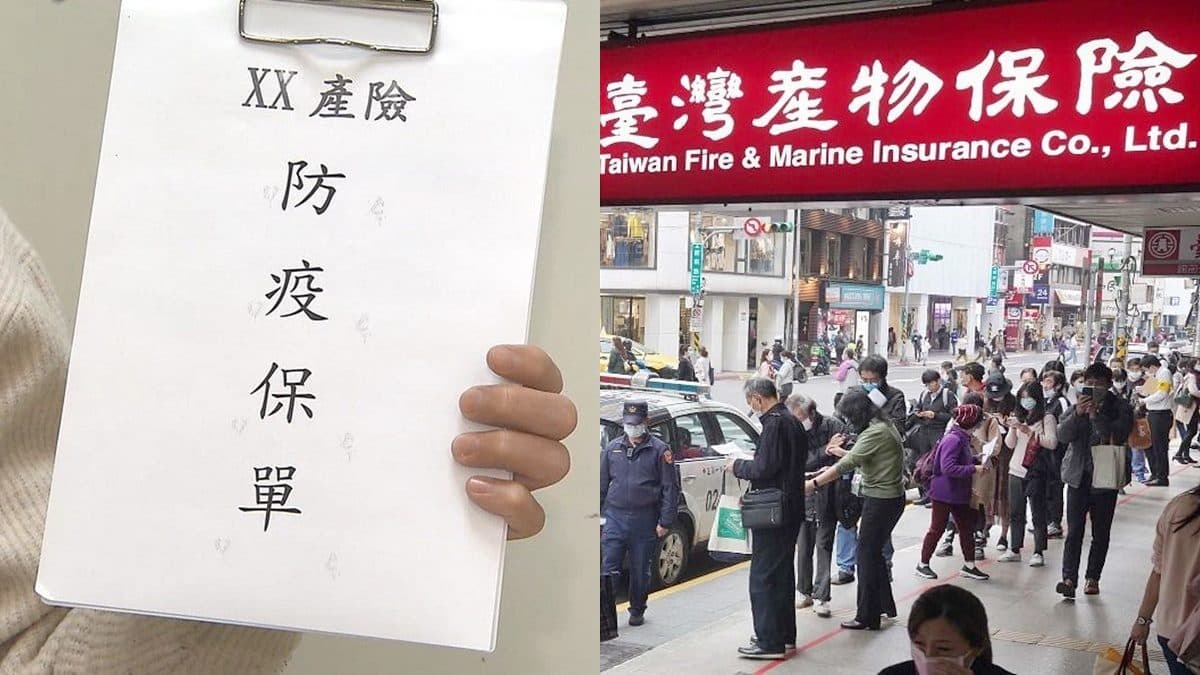 XX 產險
防
疫
保
單
臺灣產物保險
Taiwan Fire & Marine Insurance Co., Ltd.
24
02